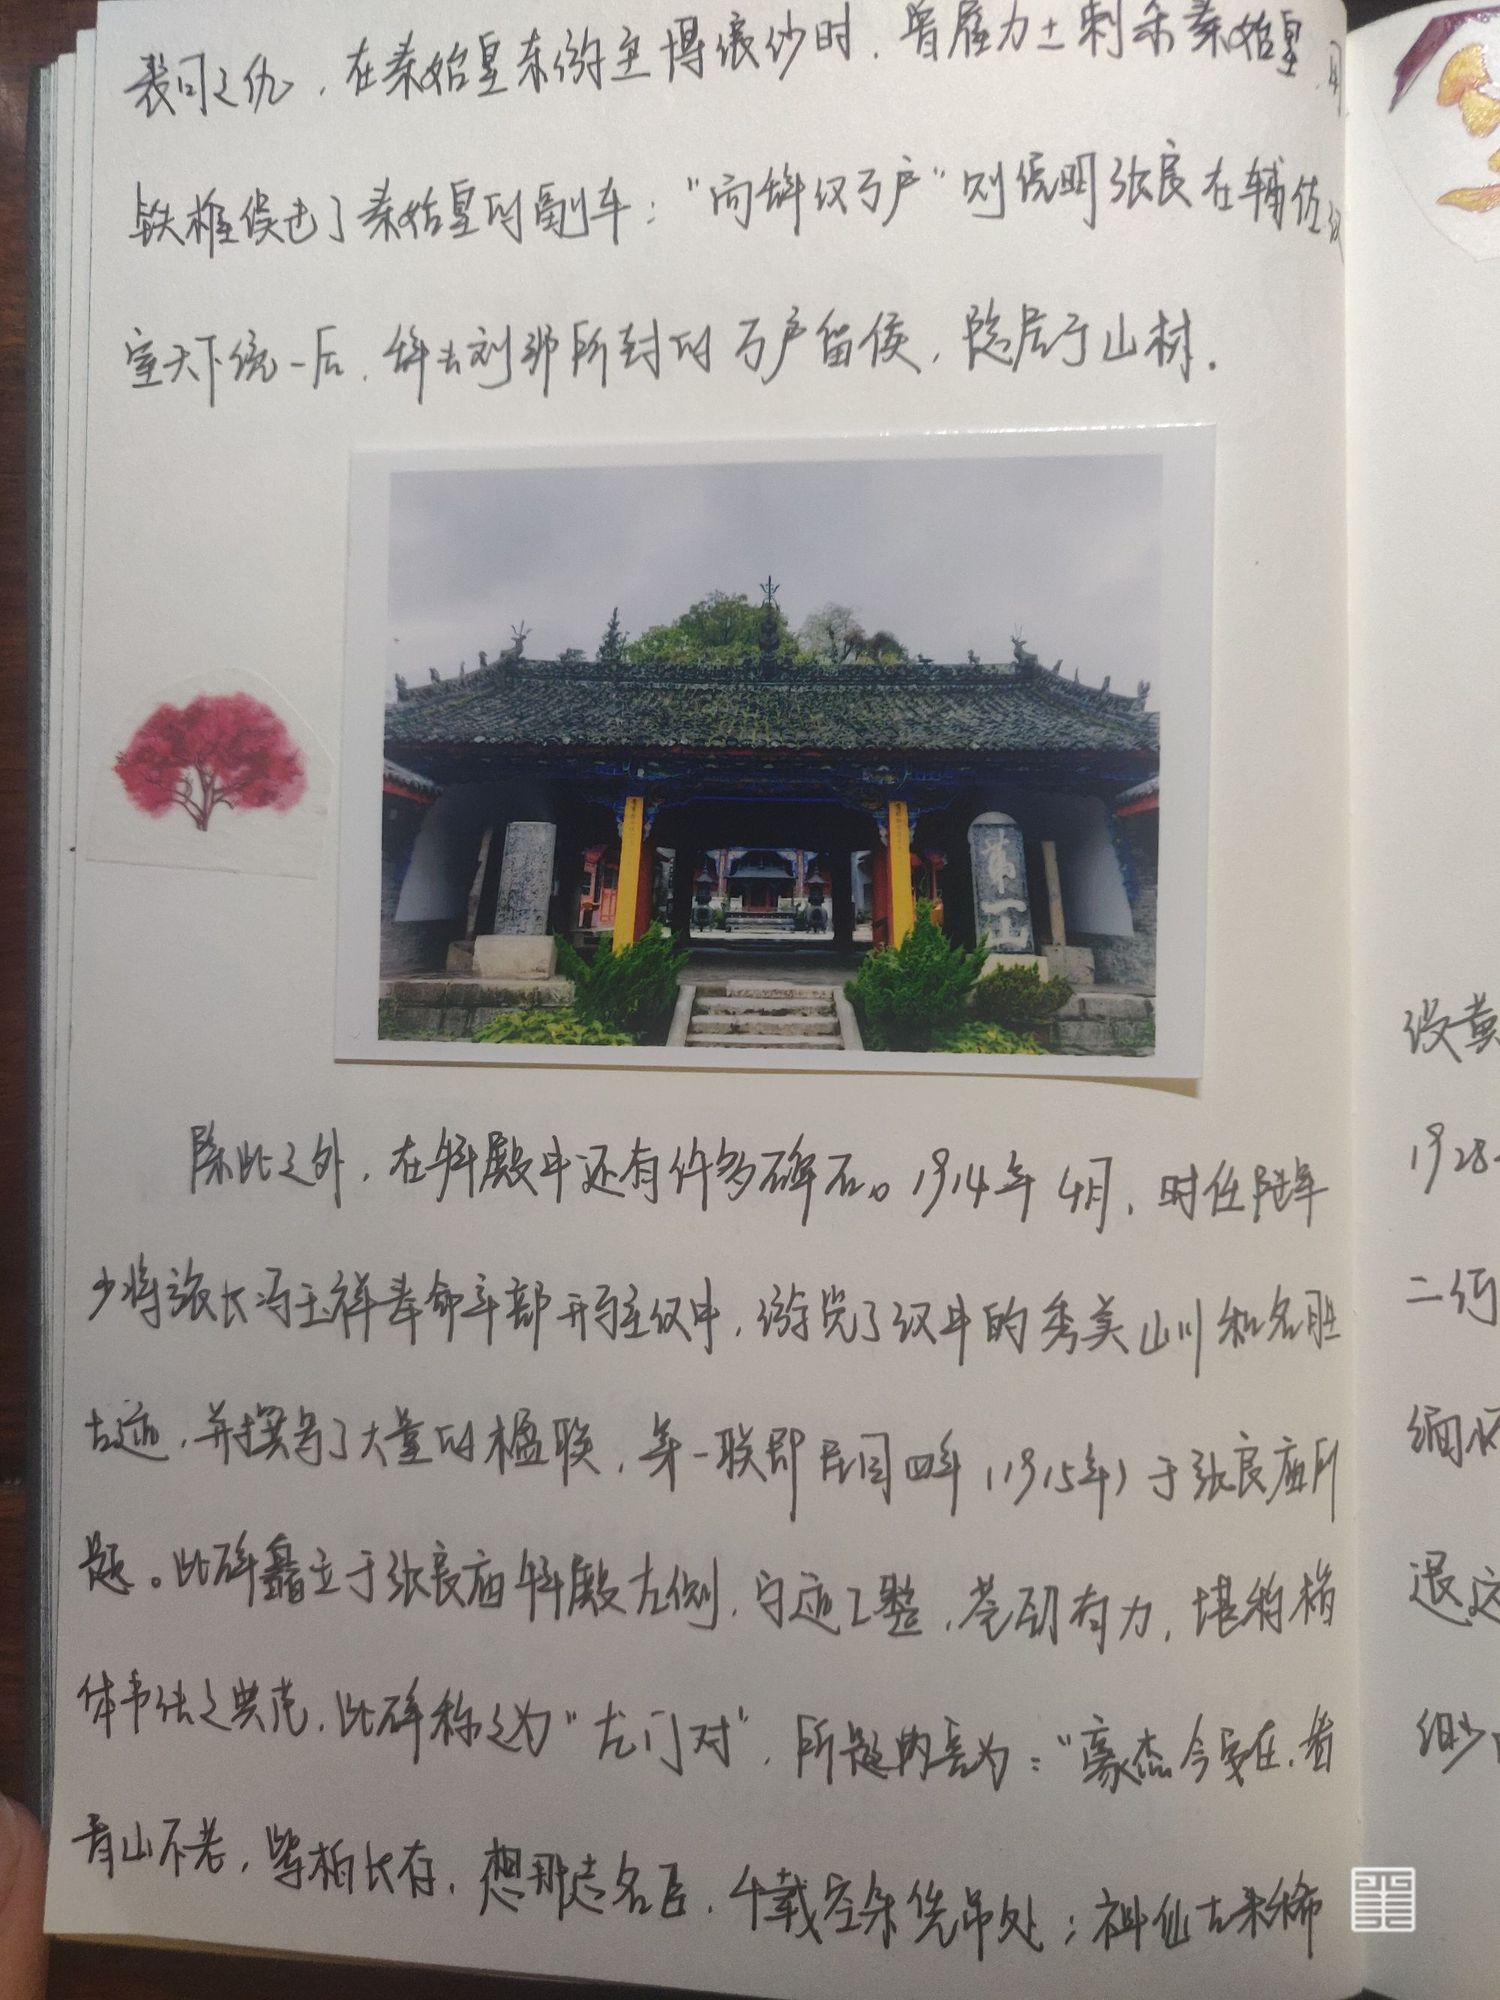 裂国之仇，在秦始皇东游至博浪沙时，曾雇力士刺杀秦始皇，用
铁椎误击了秦始皇的副车；“向辞汉万户”则说明张良在辅佐汉
室天下统一后，辞去刘邦所封的万户留侯，隐居于山村。
第一山
除此之外，在拜殿中还有许多碑石。1914年4月，时任陆军
少将旅长冯玉祥奉命率部开到汉中，游览了汉中的秀美山川和名胜
古迹，并撰写了大量的楹联，第一联即民国四年（1915年）于张良庙所
题。此碑矗立于张良庙拜殿左侧，字迹工整，苍劲有力，堪称楷
体书法之典范，此碑称之为“龙门对”，所题内容为：“豪杰今安在，看
青山不老，紫柏长存，想那志名臣，千载空余凭吊处；神仙古来稀
设黄
1928
二何
缅怀
退这
细